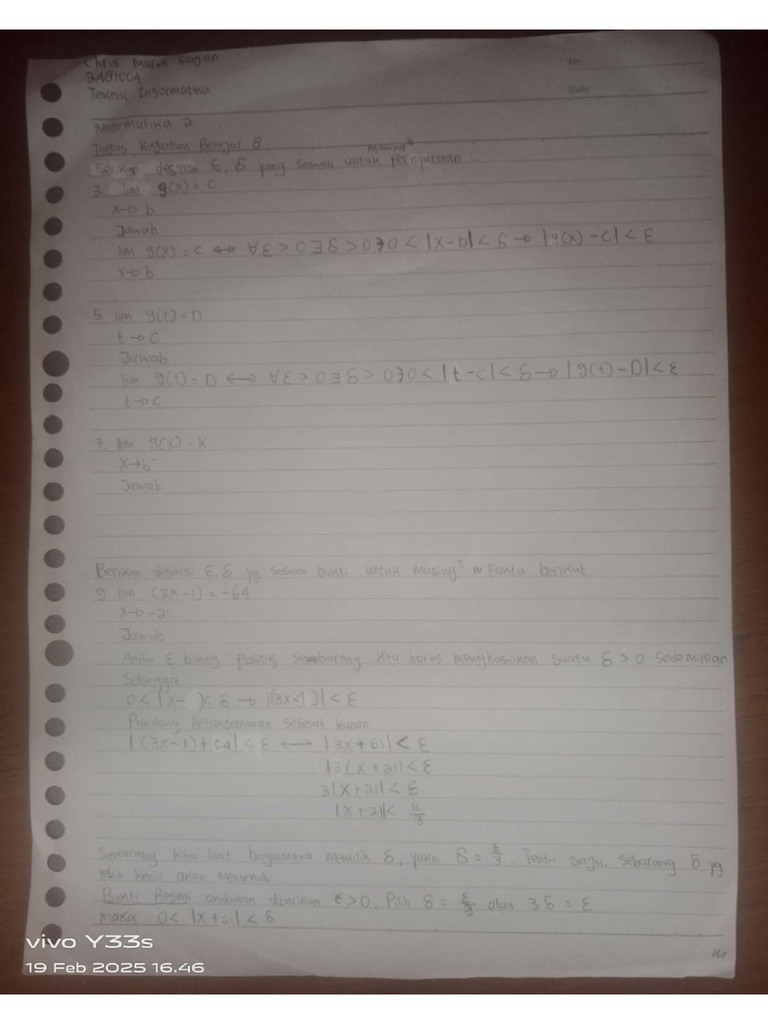 Chris Maruli Sagian
2481004
Teknik Informatika
Matematika 2
Tugas Kegiatan Belajar 8
masing²
Berikan definisi ε, δ yang sesuai untuk Pernyataan :
3. lim g(x) = c
x→b
Jawab
lim g(x) = c ↔ ∀ε > 0 ∃ δ > 0 ∋ 0 < |x-b| < δ → |g(x) - c| < ε
x→b
5. lim g(t) = D
t→c
Jawab
lim g(t) = D ↔ ∀ε > 0 ∃ δ > 0 ∋ 0 < |t-c| < δ → |g(t) - D| < ε
t→c
7. lim g(x) = k
x→b⁻
Jawab
Berikan definisi ε, δ yg sesuai bukti untuk masing² Fakta berikut
9. lim (3x-1) = -64
x→-21
Jawab
Andai ε bilang positif sembarang kita harus menghasilkan suatu δ > 0 sedemikian
Sehingga
0 < |x- )< δ → |(3x-1)| < ε
Pandang ketaksamaan sebelah kanan
|(3x-1)+64| < ε ↔ |3x+63| < ε
|3(x+21)| < ε
3|x+21| < ε
|x+21| < ε/3
Sekarang kita lihat bagaimana memilih δ, yakni δ = ε/3. Tentu saja, sebarang δ yg
lebih kecil akan memenuhi
Bukti Resmi andaikan diberikan ε > 0. Pilih δ = ε/3 atau 3δ = ε
maka 0 < |x+21| < δ
vivo Y33s
19 Feb 2025 16.46